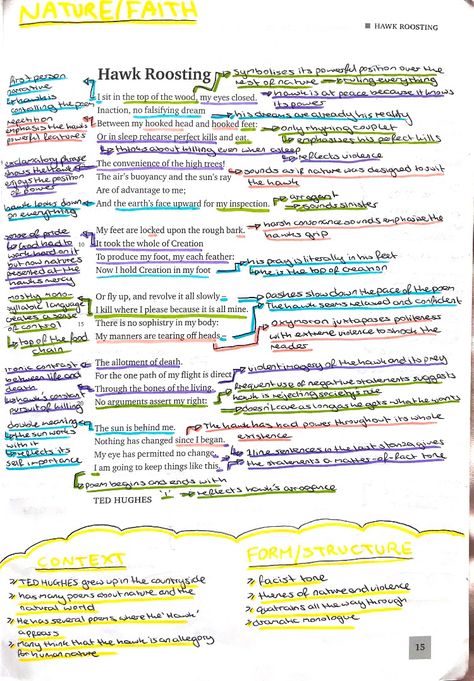 NATURE/FAITH
HAWK ROOSTING
Hawk Roosting
symbolises its powerful position over the
rest of nature → ruling everything
first person
narrative
↳ hawk is
controlling the poem
I sit in the top of the wood, my eyes closed.
hawk is at peace because it knows
its power
Inaction, no falsifying dream
his dreams are already his reality
repetition
emphasis the hawk's
powerful features
Between my hooked head and hooked feet:
only rhyming couplet
Or in sleep rehearse perfect kills and eat.
emphasises his perfect kills
thinks about killing even when asleep
reflects violence
exclamatory phrase
shows the hawk
enjoys the position
of power
The convenience of the high trees!
sounds as if nature was designed to suit
the hawk
The air's buoyancy and the sun's ray
Are of advantage to me;
arrogant
hawk looks down
on everything
And the earth's face upward for my inspection.
sounds sinister
My feet are locked upon the rough bark.
harsh consonance sounds emphasise the
hawks grip
sense of pride
↳ God had to
work hard on it
but now nature's
presented at the
hawks mercy
10
It took the whole of Creation
To produce my foot, my each feather:
his prey is literally in his feet
Now I hold Creation in my foot
tone is the top of creation
mostly mono-
syllabic language
creates a sense
of control
Or fly up, and revolve it all slowly –
dashes slow down the pace of the poem
The hawk seems relaxed and confident
I kill where I please because it is all mine.
15
There is no sophistry in my body:
oxymoron juxtaposes politeness
with extreme violence to shock the
reader
↳ top of the food
chain
My manners are tearing off heads –
ironic contrast
between life and
death
↳ hawk's constant
pursuit of killing
The allotment of death.
violent imagery of the hawk and its prey
For the one path of my flight is direct
Through the bones of the living.
frequent use of negative statements suggests
hawk is rejecting society's rule
20
No arguments assert my right:
doesn't care as long as he gets what he wants
double meaning
↳ the sun works
with it
↳ reflects its
self importance
The sun is behind me.
The hawk has had power throughout its whole
existence
Nothing has changed since I began.
My eye has permitted no change.
1 line sentences in the last stanza gives
the statements a matter-of-fact tone
I am going to keep things like this.
poem begins and ends with
'I' → reflects hawk's arrogance
TED HUGHES
CONTEXT
» TED HUGHES grew up in the countryside
» has many poems about nature and the
natural world
» He has several poems where the 'Hawk'
appears
» Many think that the hawk is an allegory
for human nature
FORM/STRUCTURE
» facist tone
» themes of nature and violence
» quatrains all the way through
» dramatic monologue
15